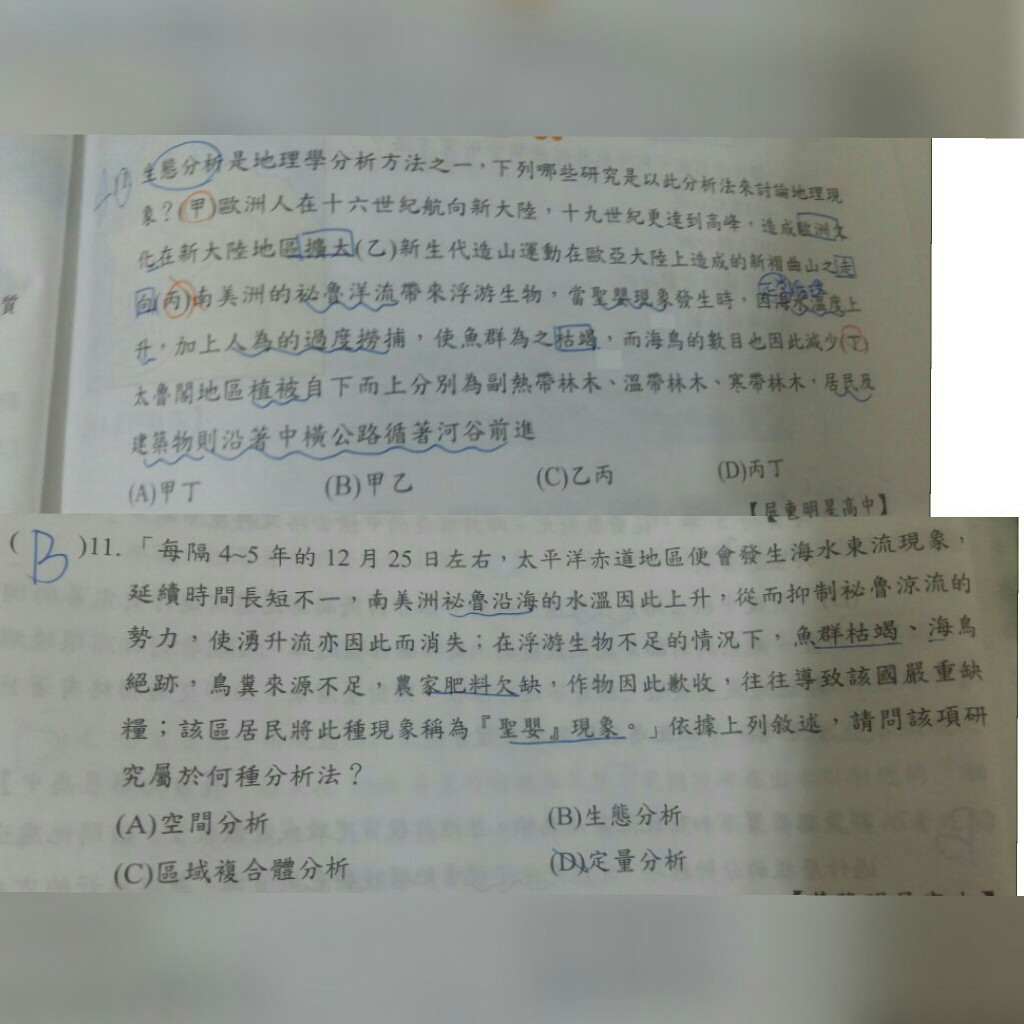 生態分析是地理學分析方法之一，下列哪些研究是以此分析法來討論地理現
象？(甲)歐洲人在十六世紀航向新大陸，十九世紀更達到高峰，造成歐洲文
化在新大陸地區擴大(乙)新生代造山運動在歐亞大陸上造成的新褶曲山之走
向(丙)南美洲的祕魯洋流帶來浮游生物，當聖嬰現象發生時，因海水溫度上
升，加上人為的過度撈捕，使魚群為之枯竭，而海鳥的數目也因此減少(丁)
質
太魯閣地區植被自下而上分別為副熱帶林木、溫帶林木、寒帶林木，居民及
建築物則沿著中橫公路循著河谷前進
(A)甲丁 (B)甲乙 (C)乙丙 (D)丙丁
明星高中】
( B )11. 「每隔 4~5 年的 12 月 25 日左右，太平洋赤道地區便會發生海水東流現象，
延續時間長短不一，南美洲祕魯沿海的水溫因此上升，從而抑制祕魯涼流的
勢力，使湧升流亦因此而消失；在浮游生物不足的情況下，魚群枯竭、海鳥
絕跡，鳥糞來源不足，農家肥料欠缺，作物因此歉收，往往導致該國嚴重缺
糧；該區居民將此種現象稱為『聖嬰』現象。」依據上列敘述，請問該項研
究屬於何種分析法？
(A)空間分析 (B)生態分析
(C)區域複合體分析 (D)定量分析